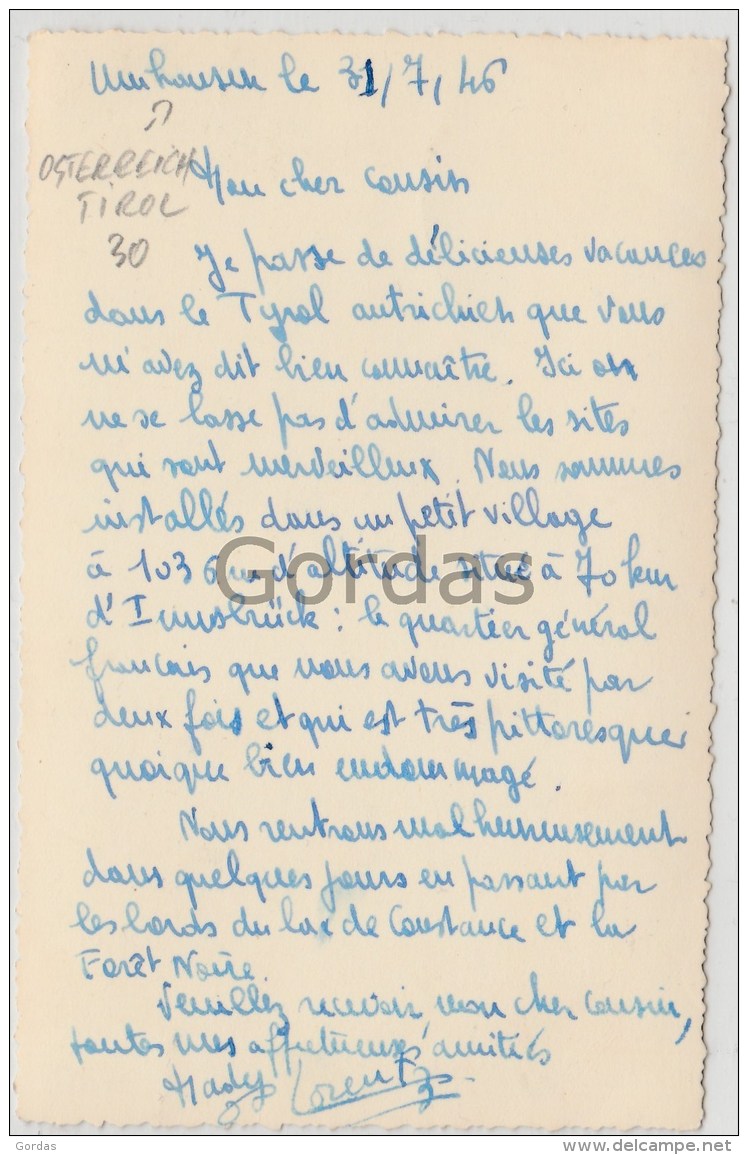 Umhausen le 31/7/46
OSTERREICH
TIROL
30
Mon cher cousin
Je passe de délicieuses vacances
dans le Tyrol autrichien que vous
m'avez dit bien connaître. Ici on
ne se lasse pas d'admirer les sites
qui sont merveilleux. Nous sommes
installés dans un petit village
à 1036 m d'altitude situé à 70 km
d'Innsbrück : le quartier général
francais que nous avons visité par
deux fois et qui est très pittoresque
quoique bien endommagé.
Nous rentrons malheureusement
dans quelques jours en passant par
les bords du lac de Constance et la
Forêt Noire.
Veuillez recevoir, mon cher cousin,
toutes mes affectueuses amitiés
Mady Lorentz
Gordas
Gordas
www.delcampe.net